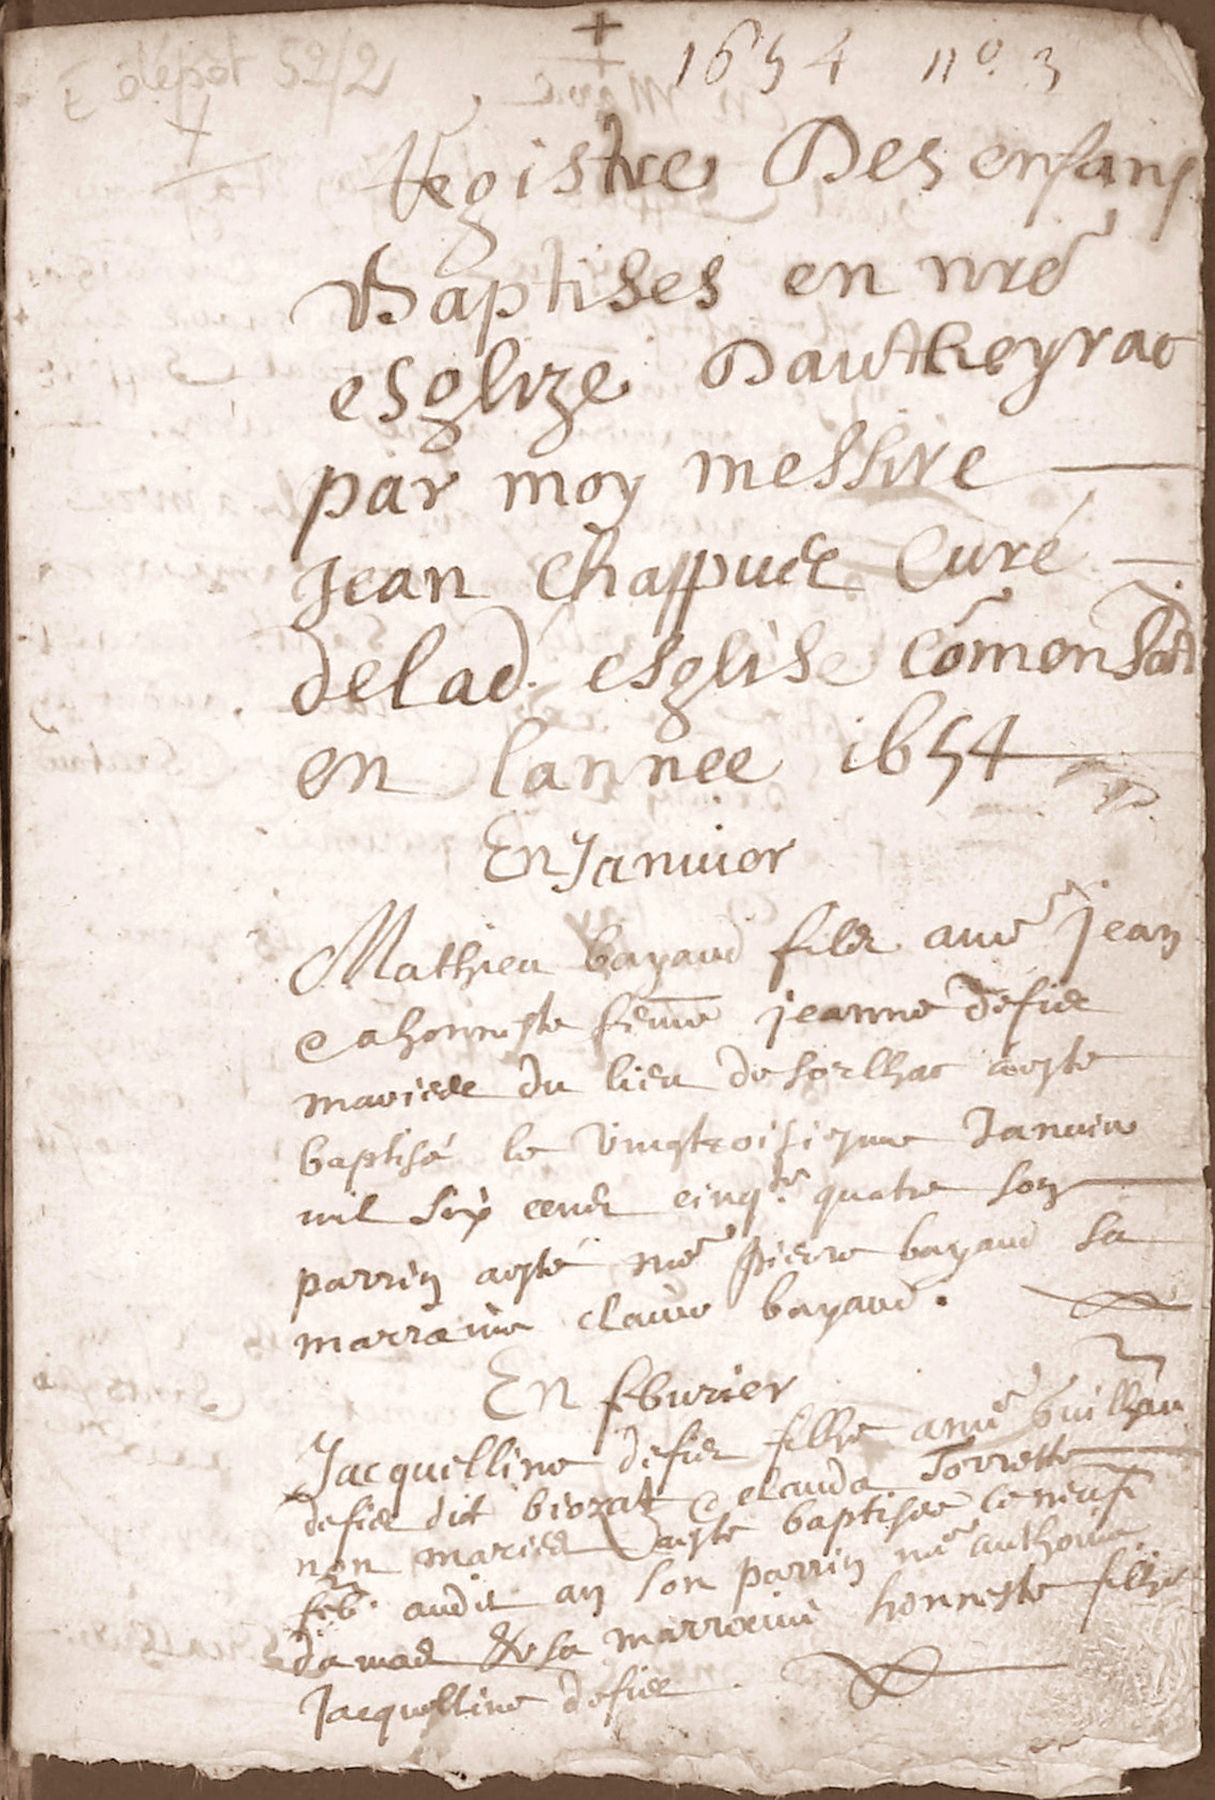 E dépot 52/2
1654 n° 3
Registre Des enfans
Baptises en nrē
esglize Dautheyrac
par moy messire
Jean Chappuis Curé
de lad. esglise cōmensant
en lannee 1654
En Januier
Mathieu bayaud fils a me Jean
e a honneste feme jeanne defies
maries du lieu de a este
baptisé le vingtroisiesme Januier
mil six cens cinqte quatre son
parrin a esté me pierre bayaud sa
marraine claude bayaud.
En feburier
Jacquelline defies filhe a me Guilhau
defies dit biozat e clauda Torrette
non maries a este baptisee le neuf
feb. audit an son parrin me anthoine
damas & sa marraine honneste filhe
Jacquelline defies.